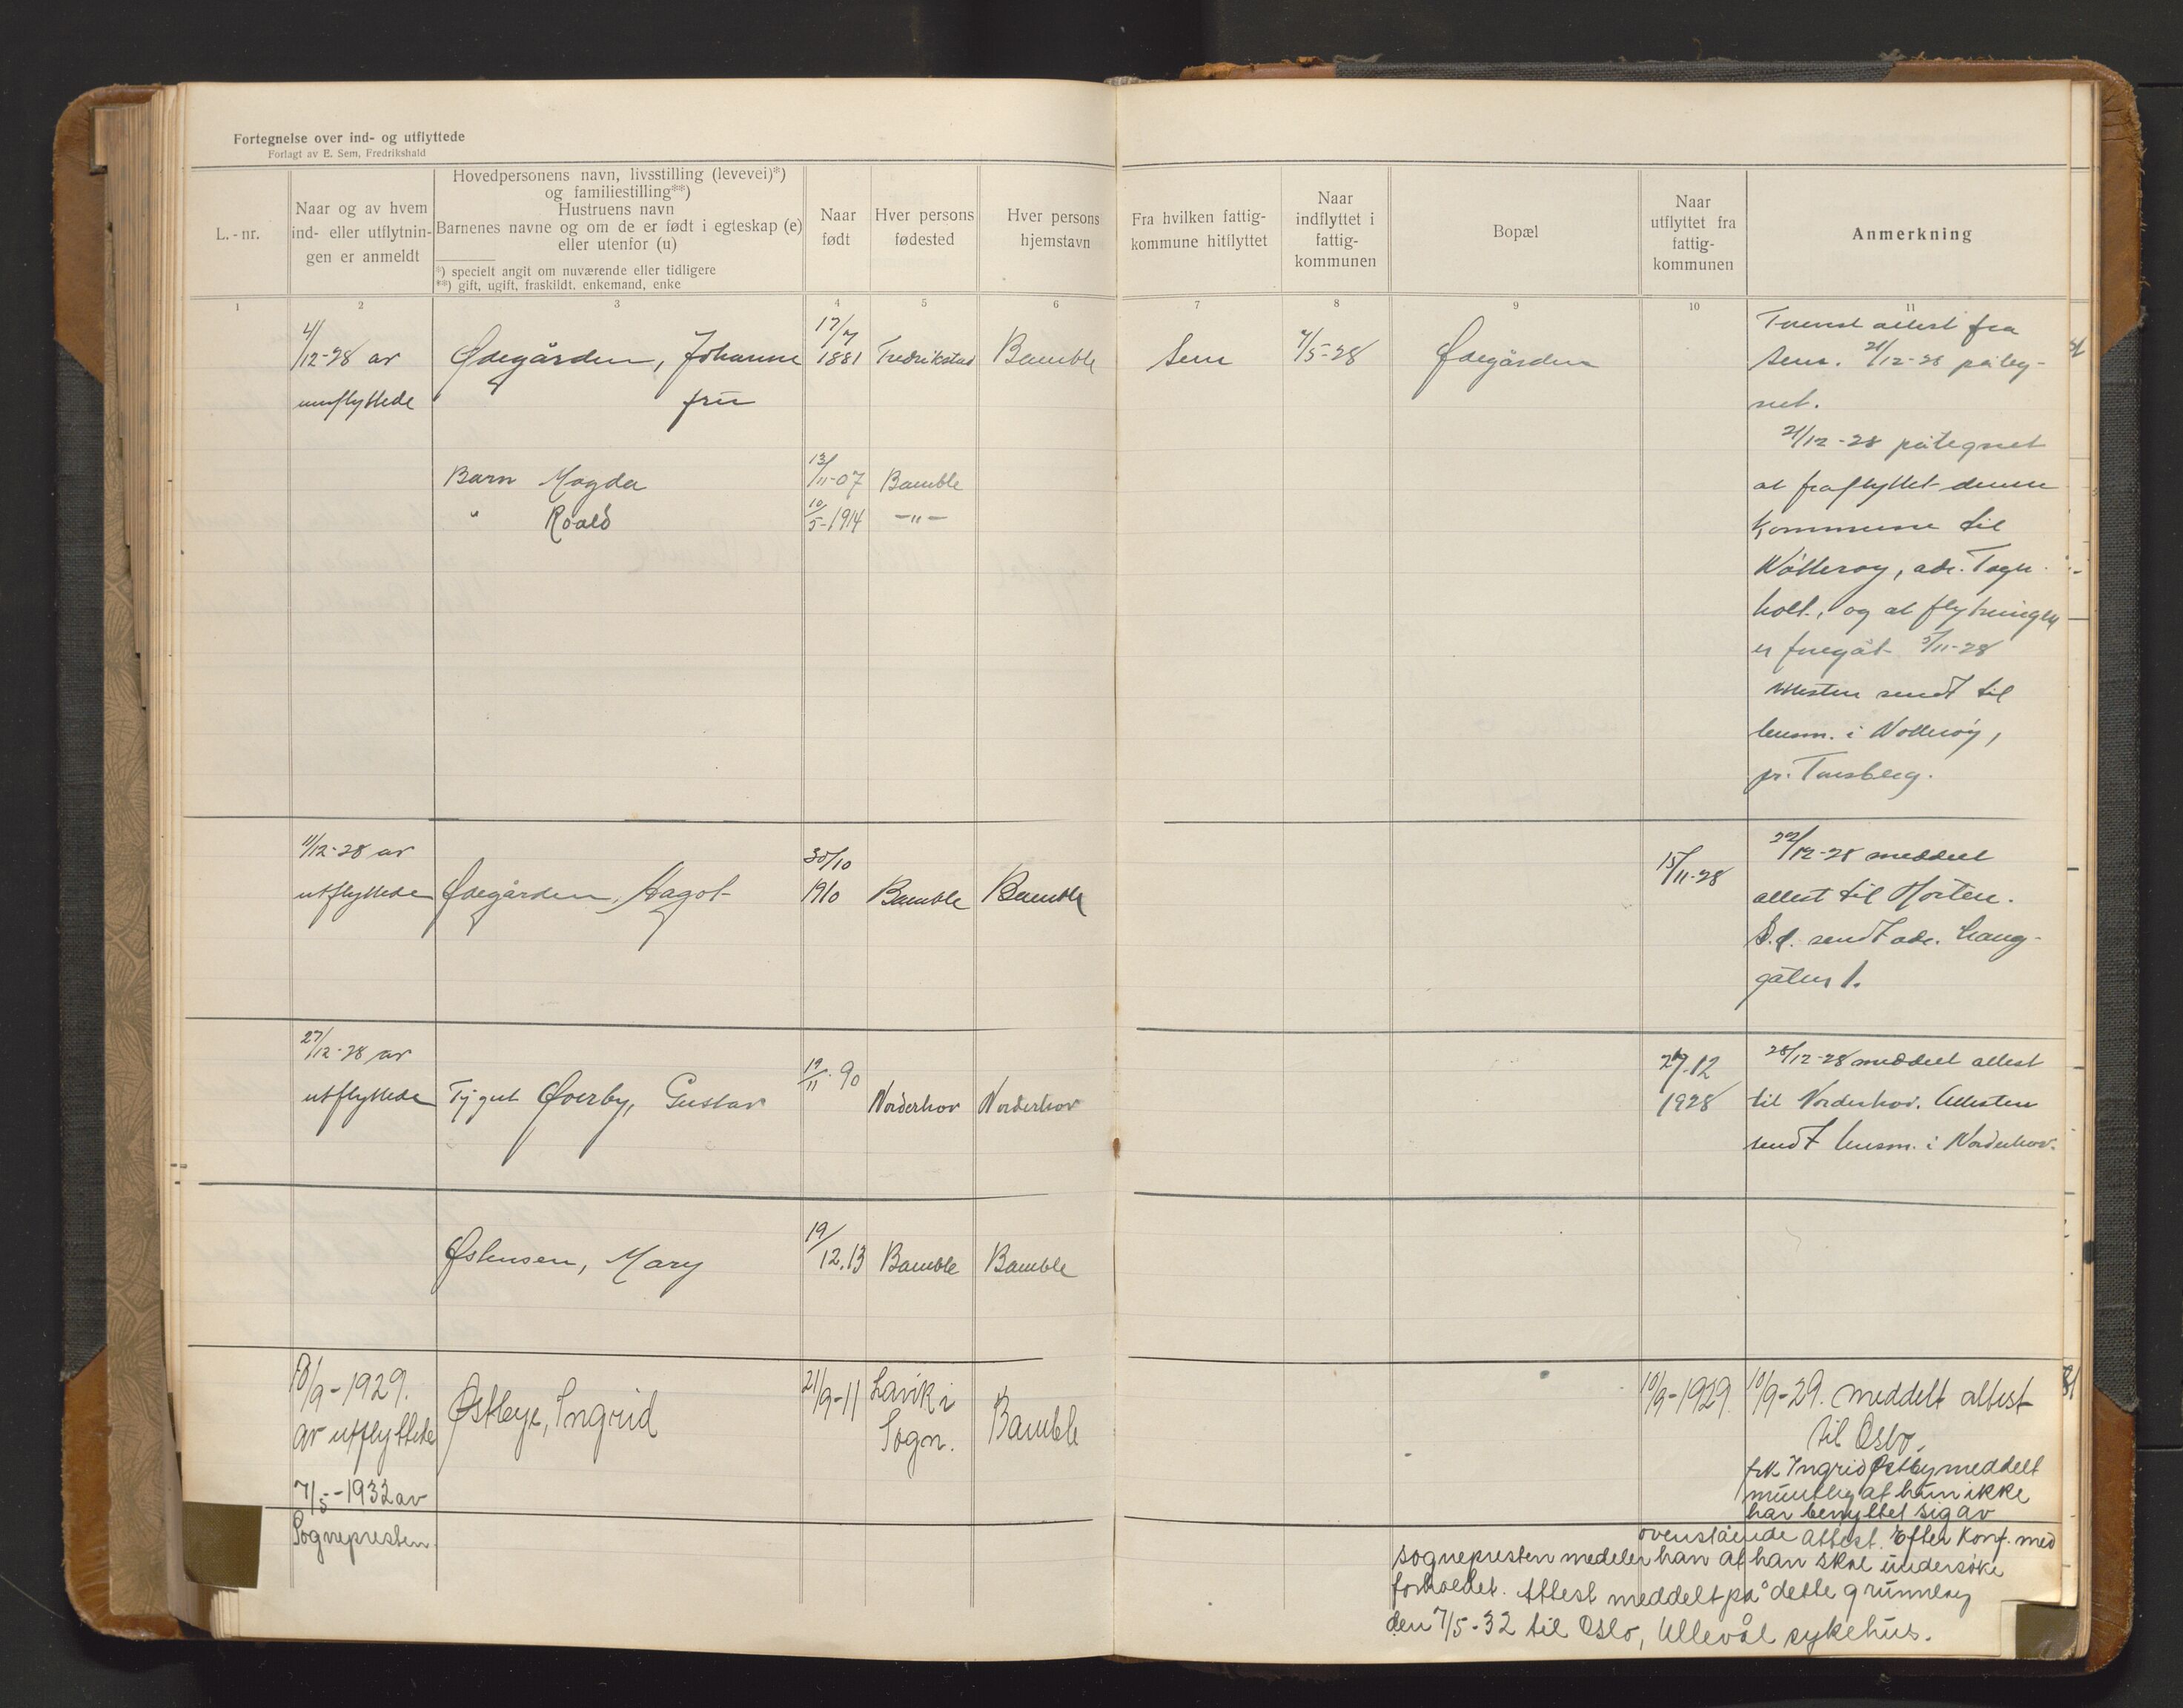 Fortegnelse over ind- og utflyttede
Forlagt av E. Sem, Fredrikshald
L.-nr.
Naar og av hvem
ind- eller utflytnin-
gen er anmeldt
Hovedpersonens navn, livsstilling (levevei)*)
og familiestilling**)
Hustruens navn
Barnenes navne og om de er født i egteskap (e)
eller utenfor (u)
*) specielt angit om nuværende eller tidligere
**) gift, ugift, fraskildt, enkemand, enke
Naar
født
Hver persons
fødested
Hver persons
hjemstavn
Fra hvilken fattig-
kommune hitflyttet
Naar
indflyttet i
fattig-
kommunen
Bopæl
Naar
utflyttet fra
fattig-
kommunen
Anmerkning
1 2 3 4 5 6 7 8 9 10 11
4/12-28 av
innflyttede
Ødegården, Johanne
fru
17/7
1881
Fredrikstad
Bamble
Sem
7/5-28
Ødegården
attest fra
Sem. 21/12-28 påteg-
net.
21/12-28 påtegnet
at fraflyttet denne
kommune til
Nøtterøy, adr.
holt, og at flytningen
er foregåt 5/11-28
Attesten sendt til
lensm. i Nøtterøy,
pr. Tønsberg.
Barn Magda
13/11-07
Bamble
" Roald
10/5-1914
-"-
11/12-28 av
utflyttede
Ødegården, Aagot
30/10
1910
Bamble
Bamble
15/11-28
22/12-28 meddelt
attest til Horten.
S.d. sendt adr. Laug-
gaten 1.
27/12-28 av
utflyttede
Tj.gut Øverby, Gustav
19/11-90
Norderhov
Norderhov
27.12
1928
28/12-28 meddelt attest
til Norderhov. Attesten
sendt lensm. i Norderhov.
Østensen, Mary
19/12.13
Bamble
Bamble
10/9-1929.
av utflyttede
Østbye, Ingrid
21/9-11
Lavik i
Sogn.
Bamble
10/9-1929.
10/9-29. meddelt attest
til Oslo.
frk Ingrid Østby meddelt
muntlig at hun ikke
har benyttet sig av
ovenstående attest. Efter konf. med
sognepresten medeler han at han skal undersøke
forholdet. Attest meddelt på dette grunnlag
den 7/5-32 til Oslo, Ullevål sykehus.
7/5-1932 av
Sognepresten